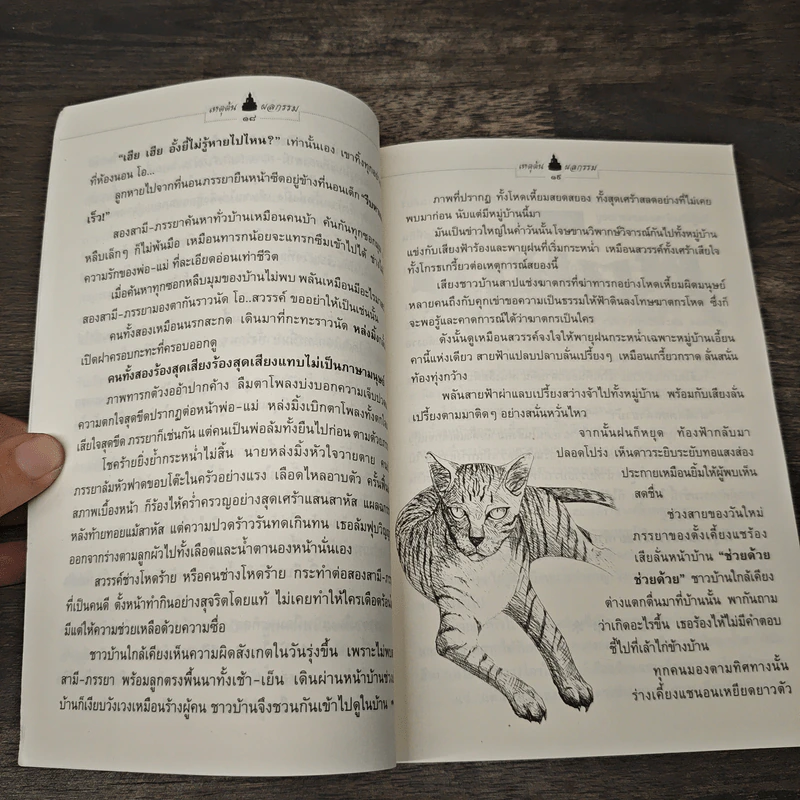 เหตุต้น ผลกรรม
๑๘
"เฮีย เฮีย อั้งยี้ไม่รู้หายไปไหน?" เท่านั้นเอง เขาทิ้งทุก
ที่ห้องนอน โอ...
ลูกหายไปจากที่นอนภรรยายืนหน้าซีดอยู่ข้างที่นอนเด็ก
เร็ว!"
สองสามี-ภรรยาค้นหาทั่วบ้านเหมือนคนบ้า ค้นกันทุกซอก
หลืบเล็กๆ ก็ไม่พ้นมือ เหมือนทารกน้อยจะแทรกซึมเข้าไปได้
ความรักของพ่อ-แม่ ที่ละเอียดอ่อนเท่าชีวิต
เมื่อค้นหาทุกซอกหลืบมุมของบ้านไม่พบ พลันเหมือนมีอะไร
สองสามี-ภรรยามองตากันราวนัด โอ..สวรรค์ ขออย่าให้เป็นเช่นนั้น
คนทั้งสองเหมือนนรกสะกด เดินมาที่กะทะราวนัด หล่งมิ้ง
เปิดฝาครอบกะทะที่ครอบออกดู
คนทั้งสองร้องสุดเสียงร้องสุดเสียงแทบไม่เป็นภาษามนุษย์
ภาพทารกตัวงออ้าปากค้าง ลืมตาโพลงบ่งบอกความเจ็บปวด
ความตกใจสุดขีดปรากฏต่อหน้าพ่อ-แม่ หล่งมิ้งเบิกตาโพลงทั้งตกใจ
เสียใจสุดขีด ภรรยาก็เช่นกัน แต่คนเป็นพ่อล้มทั้งยืนไปก่อน ตามด้วย
โชคร้ายยิ่งย้ำกระหน่ำไม่สิ้น นายหล่งมิ้งหัวใจวายตาย
ภรรยาล้มหัวฟาดขอบโต๊ะในครัวอย่างแรง เลือดไหลอาบตัว ครั้นฟื้น
สภาพเบื้องหน้า ก็ร้องไห้คร่ำครวญอย่างสุดเศร้าแสนสาหัส
หลังท้ายทอยแม้สาหัส แต่ความปวดร้าวรันทดเกินทน เธอล้มฟุบ
ออกจากร่างตามลูกผัวไปทั้งเลือดและน้ำตานองหน้านั่นเอง
สวรรค์ช่างโหดร้าย หรือคนช่างโหดร้าย กระทำต่อสองสามี-
ที่เป็นคนดี ตั้งหน้าทำกินอย่างสุจริตโดยแท้ ไม่เคยทำให้ใครเดือดร้อน
มีแต่ให้ความช่วยเหลือด้วยความซื่อ
ชาวบ้านใกล้เคียงเห็นความผิดสังเกตในวันรุ่งขึ้น เพราะไม่พบ
สามี-ภรรยา พร้อมลูกตรงพื้นนาทั้งเช้า-เย็น เดินผ่านหน้าบ้าน
บ้านก็เงียบวังเวงเหมือนร้างผู้คน ชาวบ้านจึงชวนกันเข้าไปดูในบ้าน
เหตุต้น ผลกรรม
๑๙
ภาพที่ปรากฏ ทั้งโหดเหี้ยมสยดสยอง ทั้งสุดเศร้าสลดอย่างที่ไม่เคย
พบมาก่อน นับแต่มีหมู่บ้านนี้มา
มันเป็นข่าวใหญ่ในค่ำวันนั้น โจษขานวิพากษ์วิจารณ์กันไปทั้งหมู่บ้าน
แข่งกับเสียงฟ้าร้องและพายุฝนที่เริ่มกระหน่ำ เหมือนสวรรค์ทั้งเศร้าเสียใจ
ทั้งโกรธเกรี้ยวต่อเหตุการณ์สยองนี้
เสียงชาวบ้านสาปแช่งฆาตกรที่ฆ่าทารกอย่างโหดเหี้ยมผิดมนุษย์
หลายคนถึงกับคุกเข่าขอความเป็นธรรมให้ฟ้าดินลงโทษฆาตกรโหด ซึ่งก็
จะพอรู้และคาดการณ์ได้ว่าฆาตกรเป็นใคร
ดังนั้นดูเหมือนสวรรค์จงใจให้พายุฝนกระหน่ำเฉพาะหมู่บ้านเอี้ยน
คานี้แห่งเดียว สายฟ้าแปลบปลาบลั่นเปรี้ยงๆ เหมือนเกรี้ยวกราด ลั่นสนั่น
ท้องทุ่งกว้าง
พลันสายฟ้าผ่าแลบเปรี้ยงสว่างจ้าไปทั้งหมู่บ้าน พร้อมกับเสียงลั่น
เปรี้ยงตามมาติดๆ อย่างสนั่นหวั่นไหว
จากนั้นฝนก็หยุด ท้องฟ้ากลับมา
ปลอดโปร่ง เห็นดาวระยิบระยับทอแสงส่อง
ประกายเหมือนยิ้มให้ผู้พบเห็น
สดชื่น
ช่วงสายของวันใหม่
ภรรยาของตั้งเคี้ยงแชร้อง
เสียลั่นหน้าบ้าน "ช่วยด้วย
ช่วยด้วย" ชาวบ้านใกล้เคียง
ต่างแตกตื่นมาที่บ้านนั้น พากันถาม
ว่าเกิดอะไรขึ้น เธอร้องไห้ไม่มีคำตอบ
ชี้ไปที่เล้าไก่ข้างบ้าน
ทุกคนมองตามทิศทางนั้น
ร่างเคี้ยงแชนอนเหยียดยาวตัว